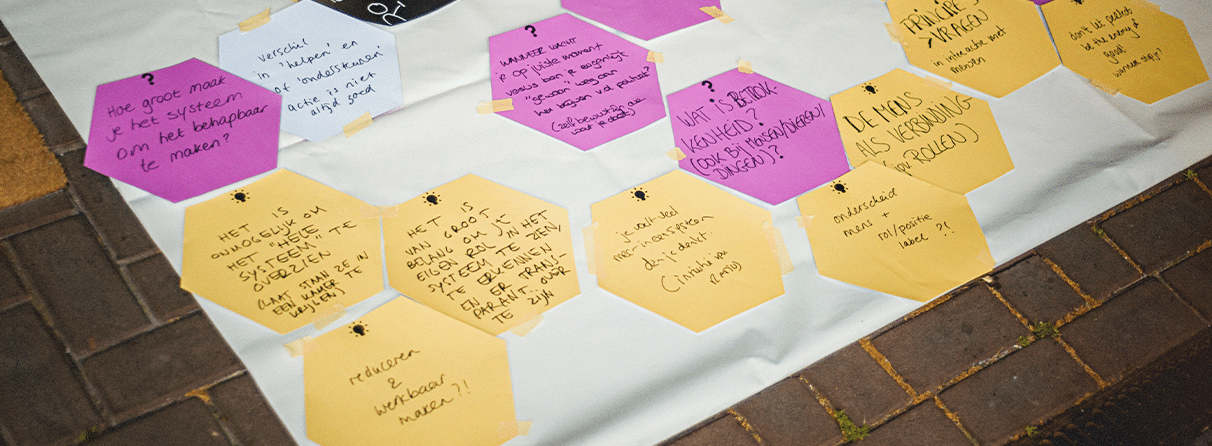 verschil
in 'helpen' en
of 'ondersteunen'
actie is niet
altijd goed
?
WANNEER WACHT
je op juiste moment
versus ben je eigenlijk
"gewoon" weg aan
het blijven
(zelfbewustzijn
waar je doet)
PRINCIPE
VRAGEN
in interactie met
mensen
don't let perfect
be the enemy of
good
wanneer stop je?
?
Hoe groot maak
je het systeem
om het behapbaar
te maken?
?
WAT IS BETROK-
KENHEID?
(OOK BIJ MENSEN/DIEREN/
DINGEN)?
DE MENS
ALS VERBINDING
ROLLEN)
HET IS
ONMOGELIJK OM
HET "HELE
SYSTEEM" TE
OVERZIEN
(LAAT STAAN ZE IN
EEN KAMER TE
KRIJGEN)
HET IS
VAN GROOT
BELANG OM JE
EIGEN ROL IN HET
SYSTEEM TE ZIEN,
TE ERKENNEN
EN ER TRANS
PARANT OVER
TE ZIJN
je voelt veel
meer in een systeem
dan je denkt
(intuïtie vs
ratio)
onderscheid
mens +
rol/positie
label ?!
reduceren
&
werkbaar
maken?!